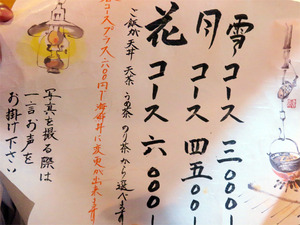 雪コース 三〇〇〇ー
月コース 四五〇〇ー
花コース 六〇〇〇ー
ご飯が天丼 天茶 うめ茶 のり茶から選べます
コースプラス六〇〇円で海鮮丼に変更が出来ます
写真を撮る際は
一言お声を
お掛け下さい